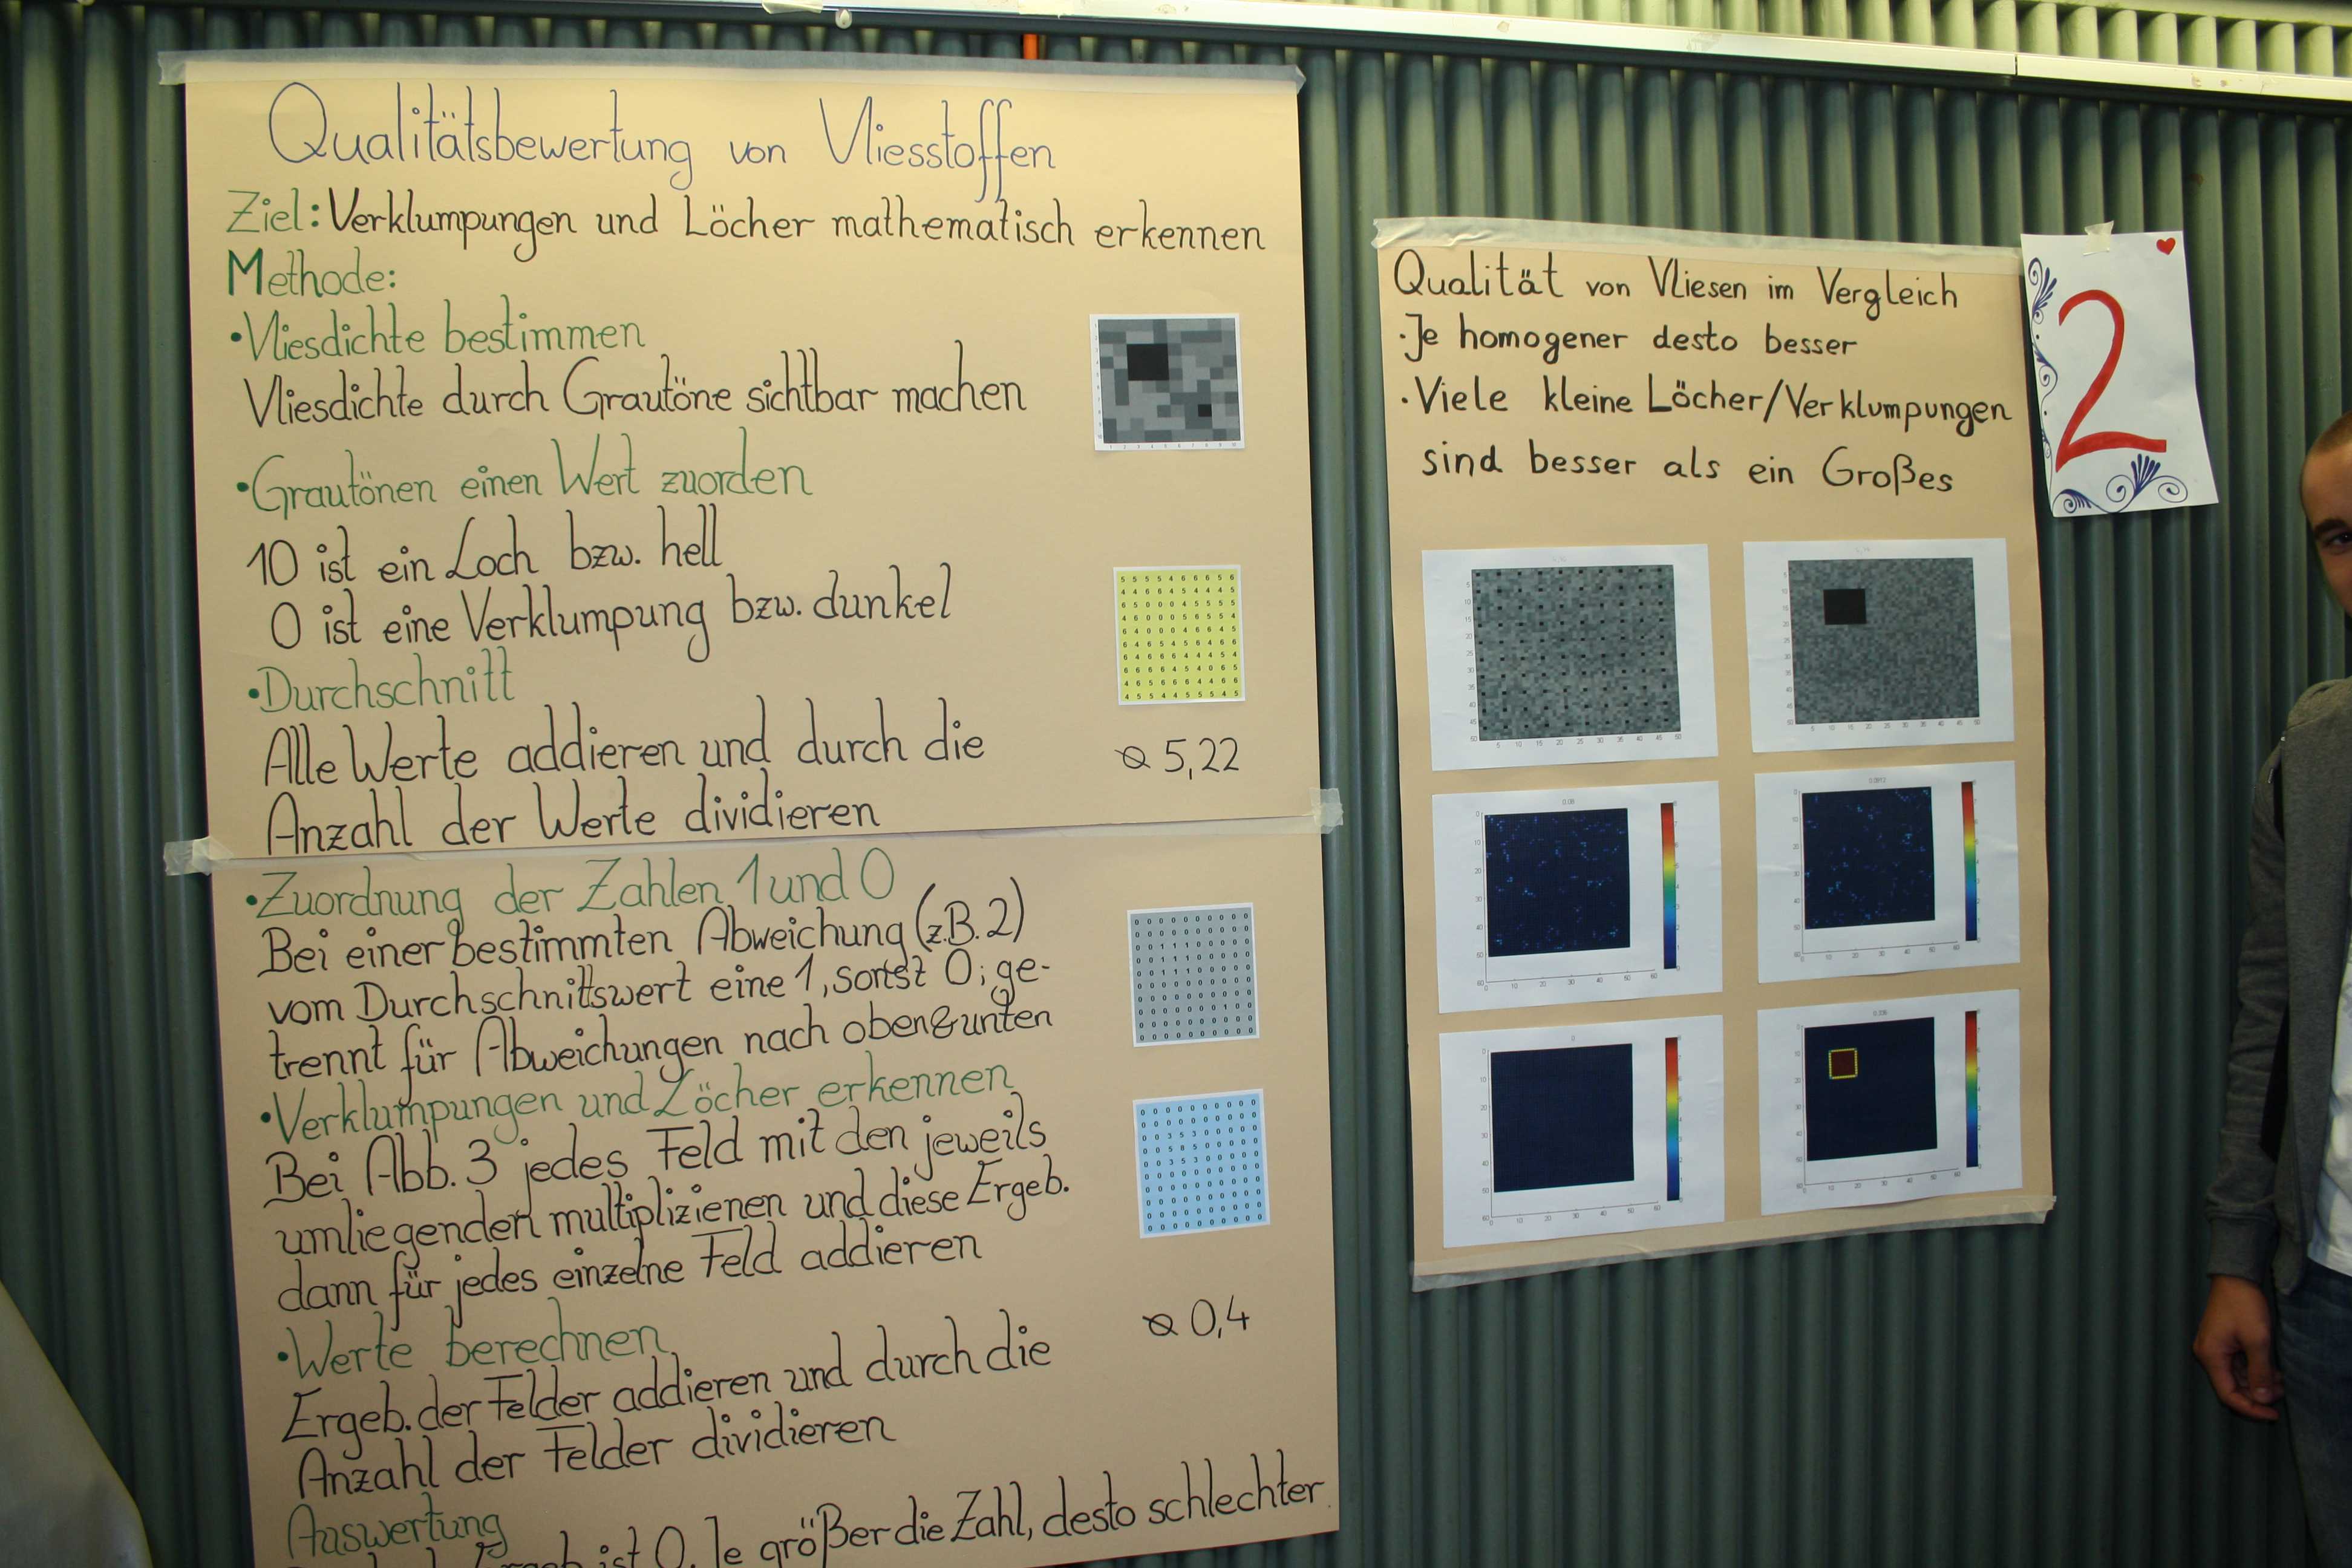 Qualitätsbewertung von Vliesstoffen
Ziel: Verklumpungen und Löcher mathematisch erkennen
Methode:
•Vliesdichte bestimmen
Vliesdichte durch Grautöne sichtbar machen
•Grautönen einen Wert zuorden
10 ist ein Loch bzw. hell
0 ist eine Verklumpung bzw. dunkel
•Durchschnitt
Alle Werte addieren und durch die
Anzahl der Werte dividieren
Ø 5,22
•Zuordnung der Zahlen 1 und 0
Bei einer bestimmten Abweichung (z.B. 2)
vom Durchschnittswert eine 1, sonst 0; ge-
trennt für Abweichungen nach oben & unten
•Verklumpungen und Löcher erkennen
Bei Abb. 3 jedes Feld mit den jeweils
umliegenden multiplizienen und diese Ergeb.
dann für jedes einzelne Feld addieren
•Werte berechnen
Ergeb. der Felder addieren und durch die
Anzahl der Felder dividieren
Ø 0,4
Auswertung
ist 0. Je größer die Zahl, desto schlechter
Qualität von Vliesen im Vergleich
·Je homogener desto besser
·Viele kleine Löcher/Verklumpungen
sind besser als ein Großes
2